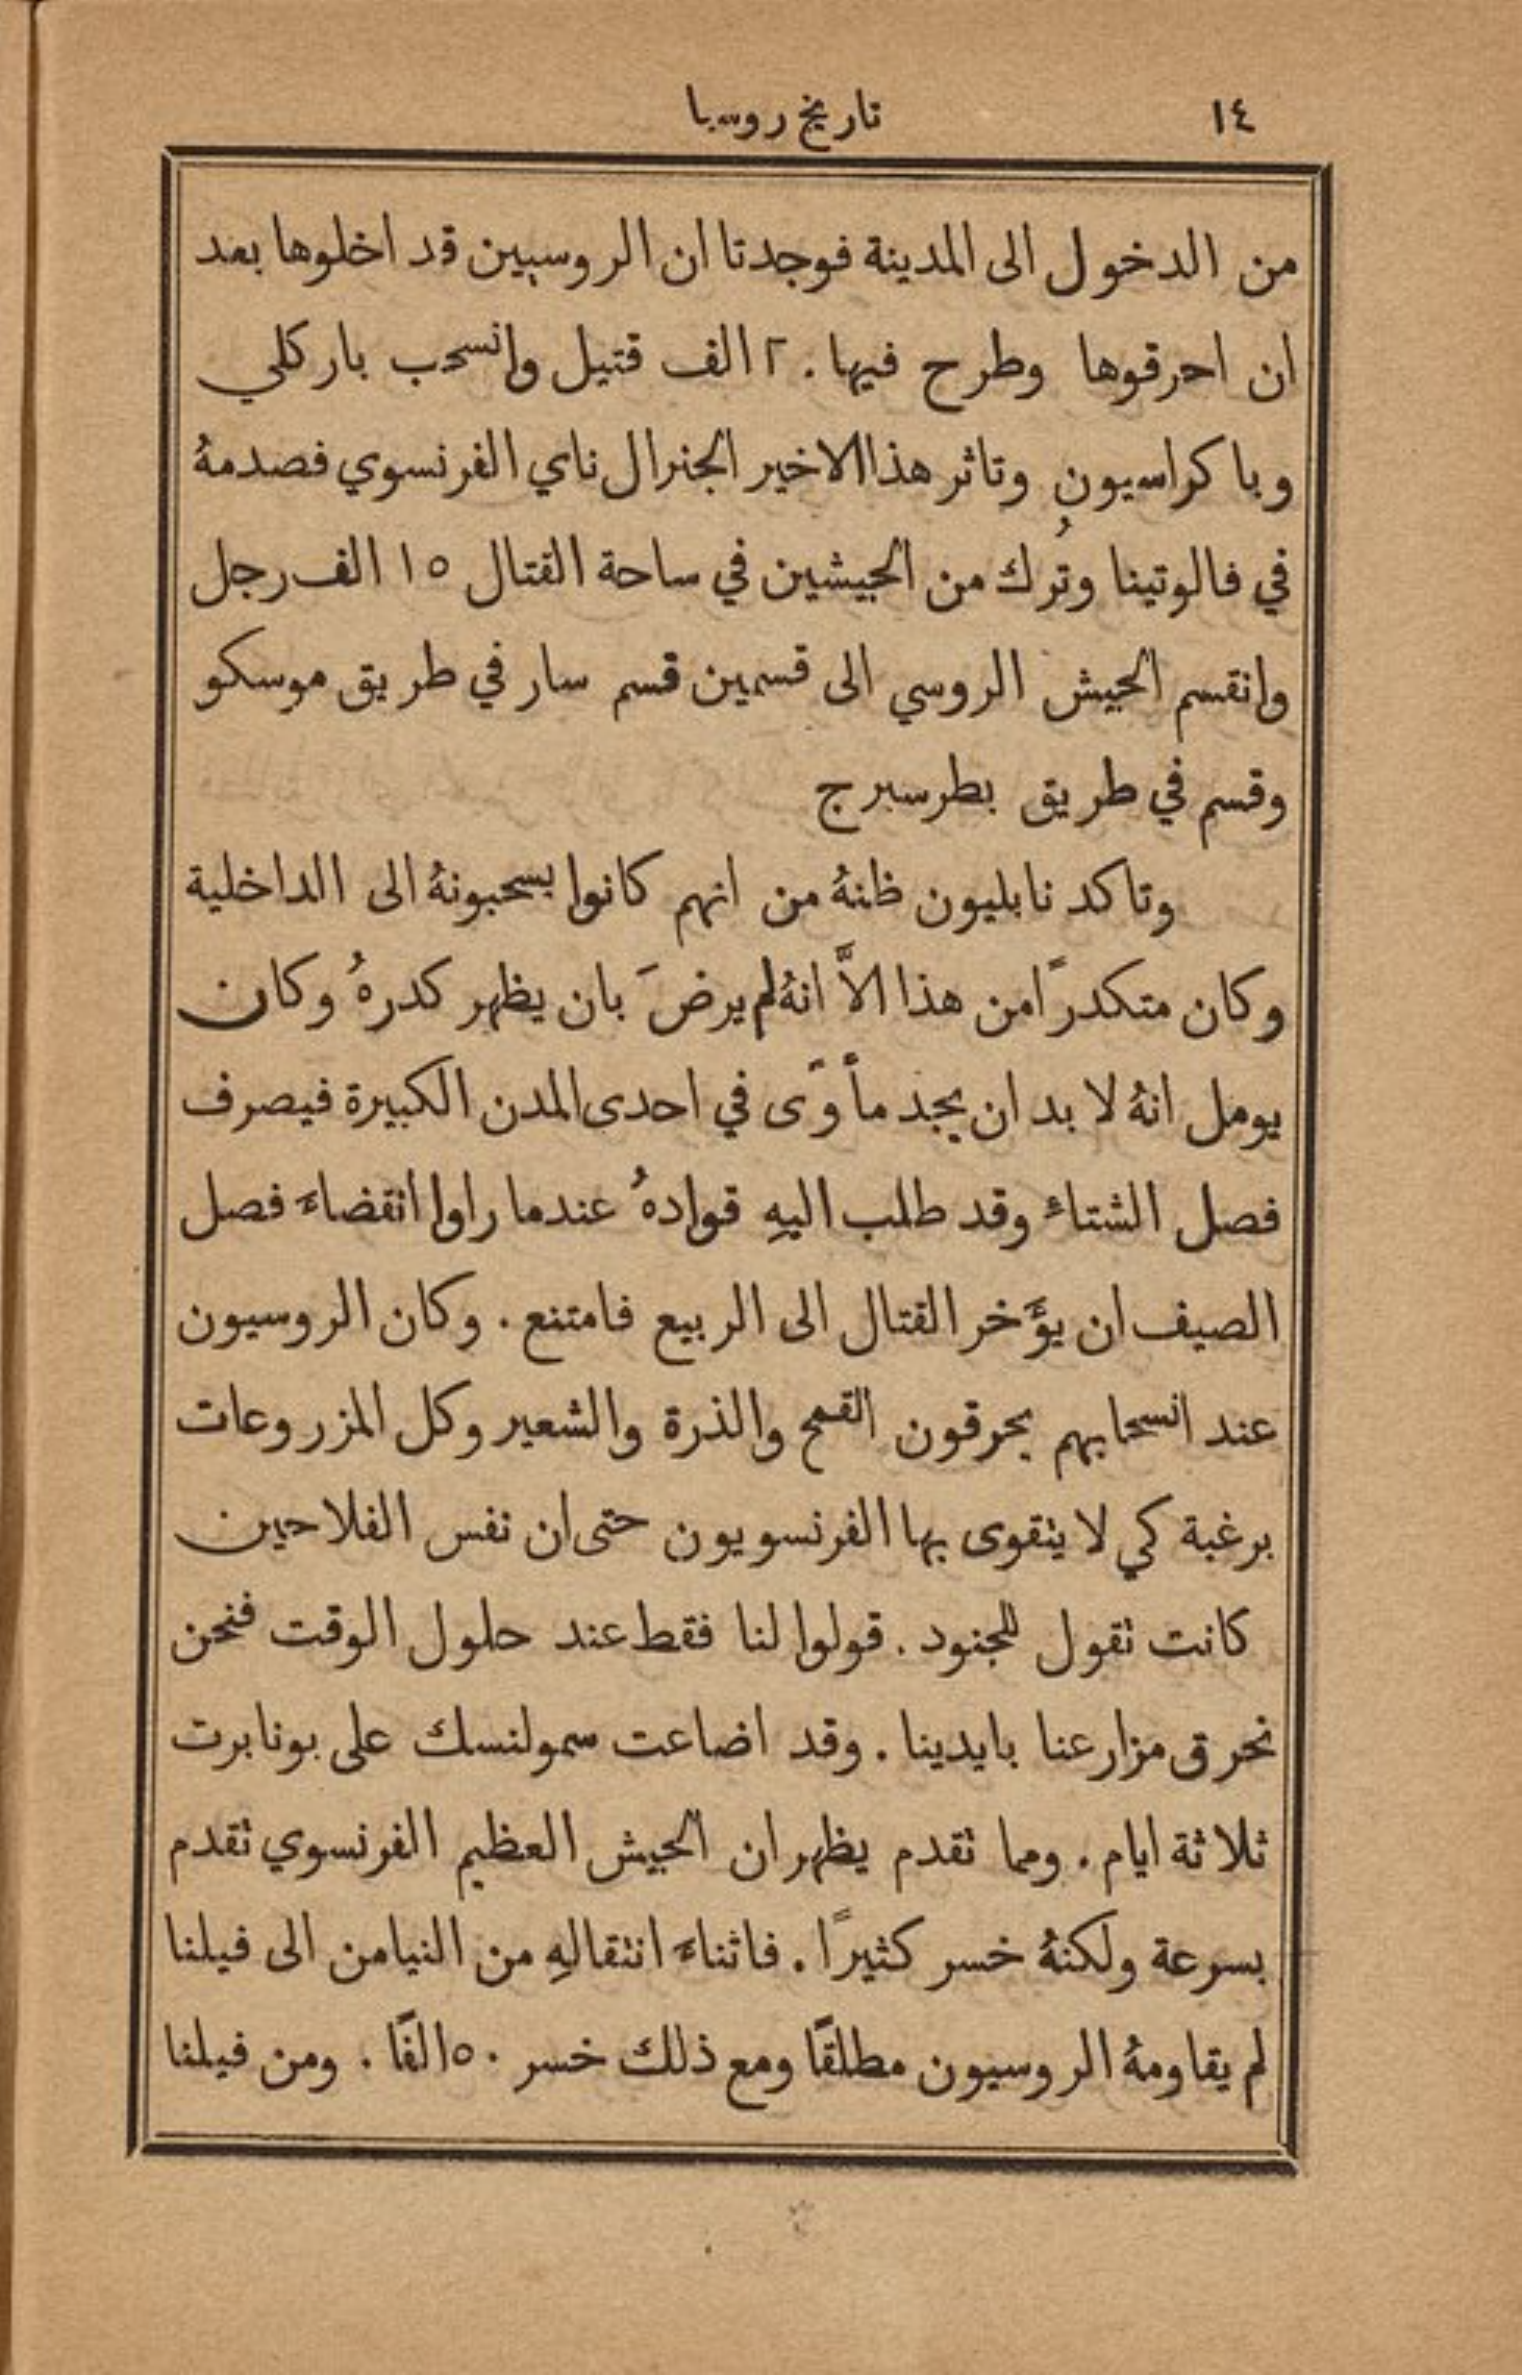 ١٤
تاريخ روسيا
من الدخول الى المدينة فوجدتا ان الروسيين قد اخلوها بعد
ان احرقوها وطرح فيها ٢٠ الف قتيل وانسحب باركلي
وباكراسيون وتاثر هذا الاخير الجنرال ناي الفرنسوي فصدمهُ
في فالوتينا وتُرك من الجيشين في ساحة القتال ١٥ الف رجل
وانقسم الجيش الروسي الى قسمين قسم سار في طريق موسكو
وقسم في طريق بطرسبرج
وتاكد نابليون ظنهُ من انهم كانوا يسحبونهُ الى الداخلية
وكان متكدرًا من هذا الاَّ انهُ لم يرضَ بان يظهر كدرهُ وكان
يومل انهُ لا بد ان يجد مأوًى في احدى المدن الكبيرة فيصرف
فصل الشتاء وقد طلب اليهِ قوادهُ عندما راوا انقضاءَ فصل
الصيف ان يؤَخر القتال الى الربيع فامتنع . وكان الروسيون
عند انسحابهم يحرقون القمح والذرة والشعير وكل المزروعات
برغبة كي لا يتقوى بها الفرنسويون حتى ان نفس الفلاحين
كانت تقول للجنود . قولوا لنا فقط عند حلول الوقت فنحن
نحرق مزارعنا بايدينا . وقد اضاعت سمولنسك على بونابرت
ثلاثة ايام . ومما تقدم يظهر ان الجيش العظيم الفرنسوي تقدم
بسرعة ولكنهُ خسر كثيرًا . فاثناءَ انتقالهِ من النيامن الى فيلنا
لم يقاومهُ الروسيون مطلقًا ومع ذلك خسر ٥٠ الفًا . ومن فيلنا